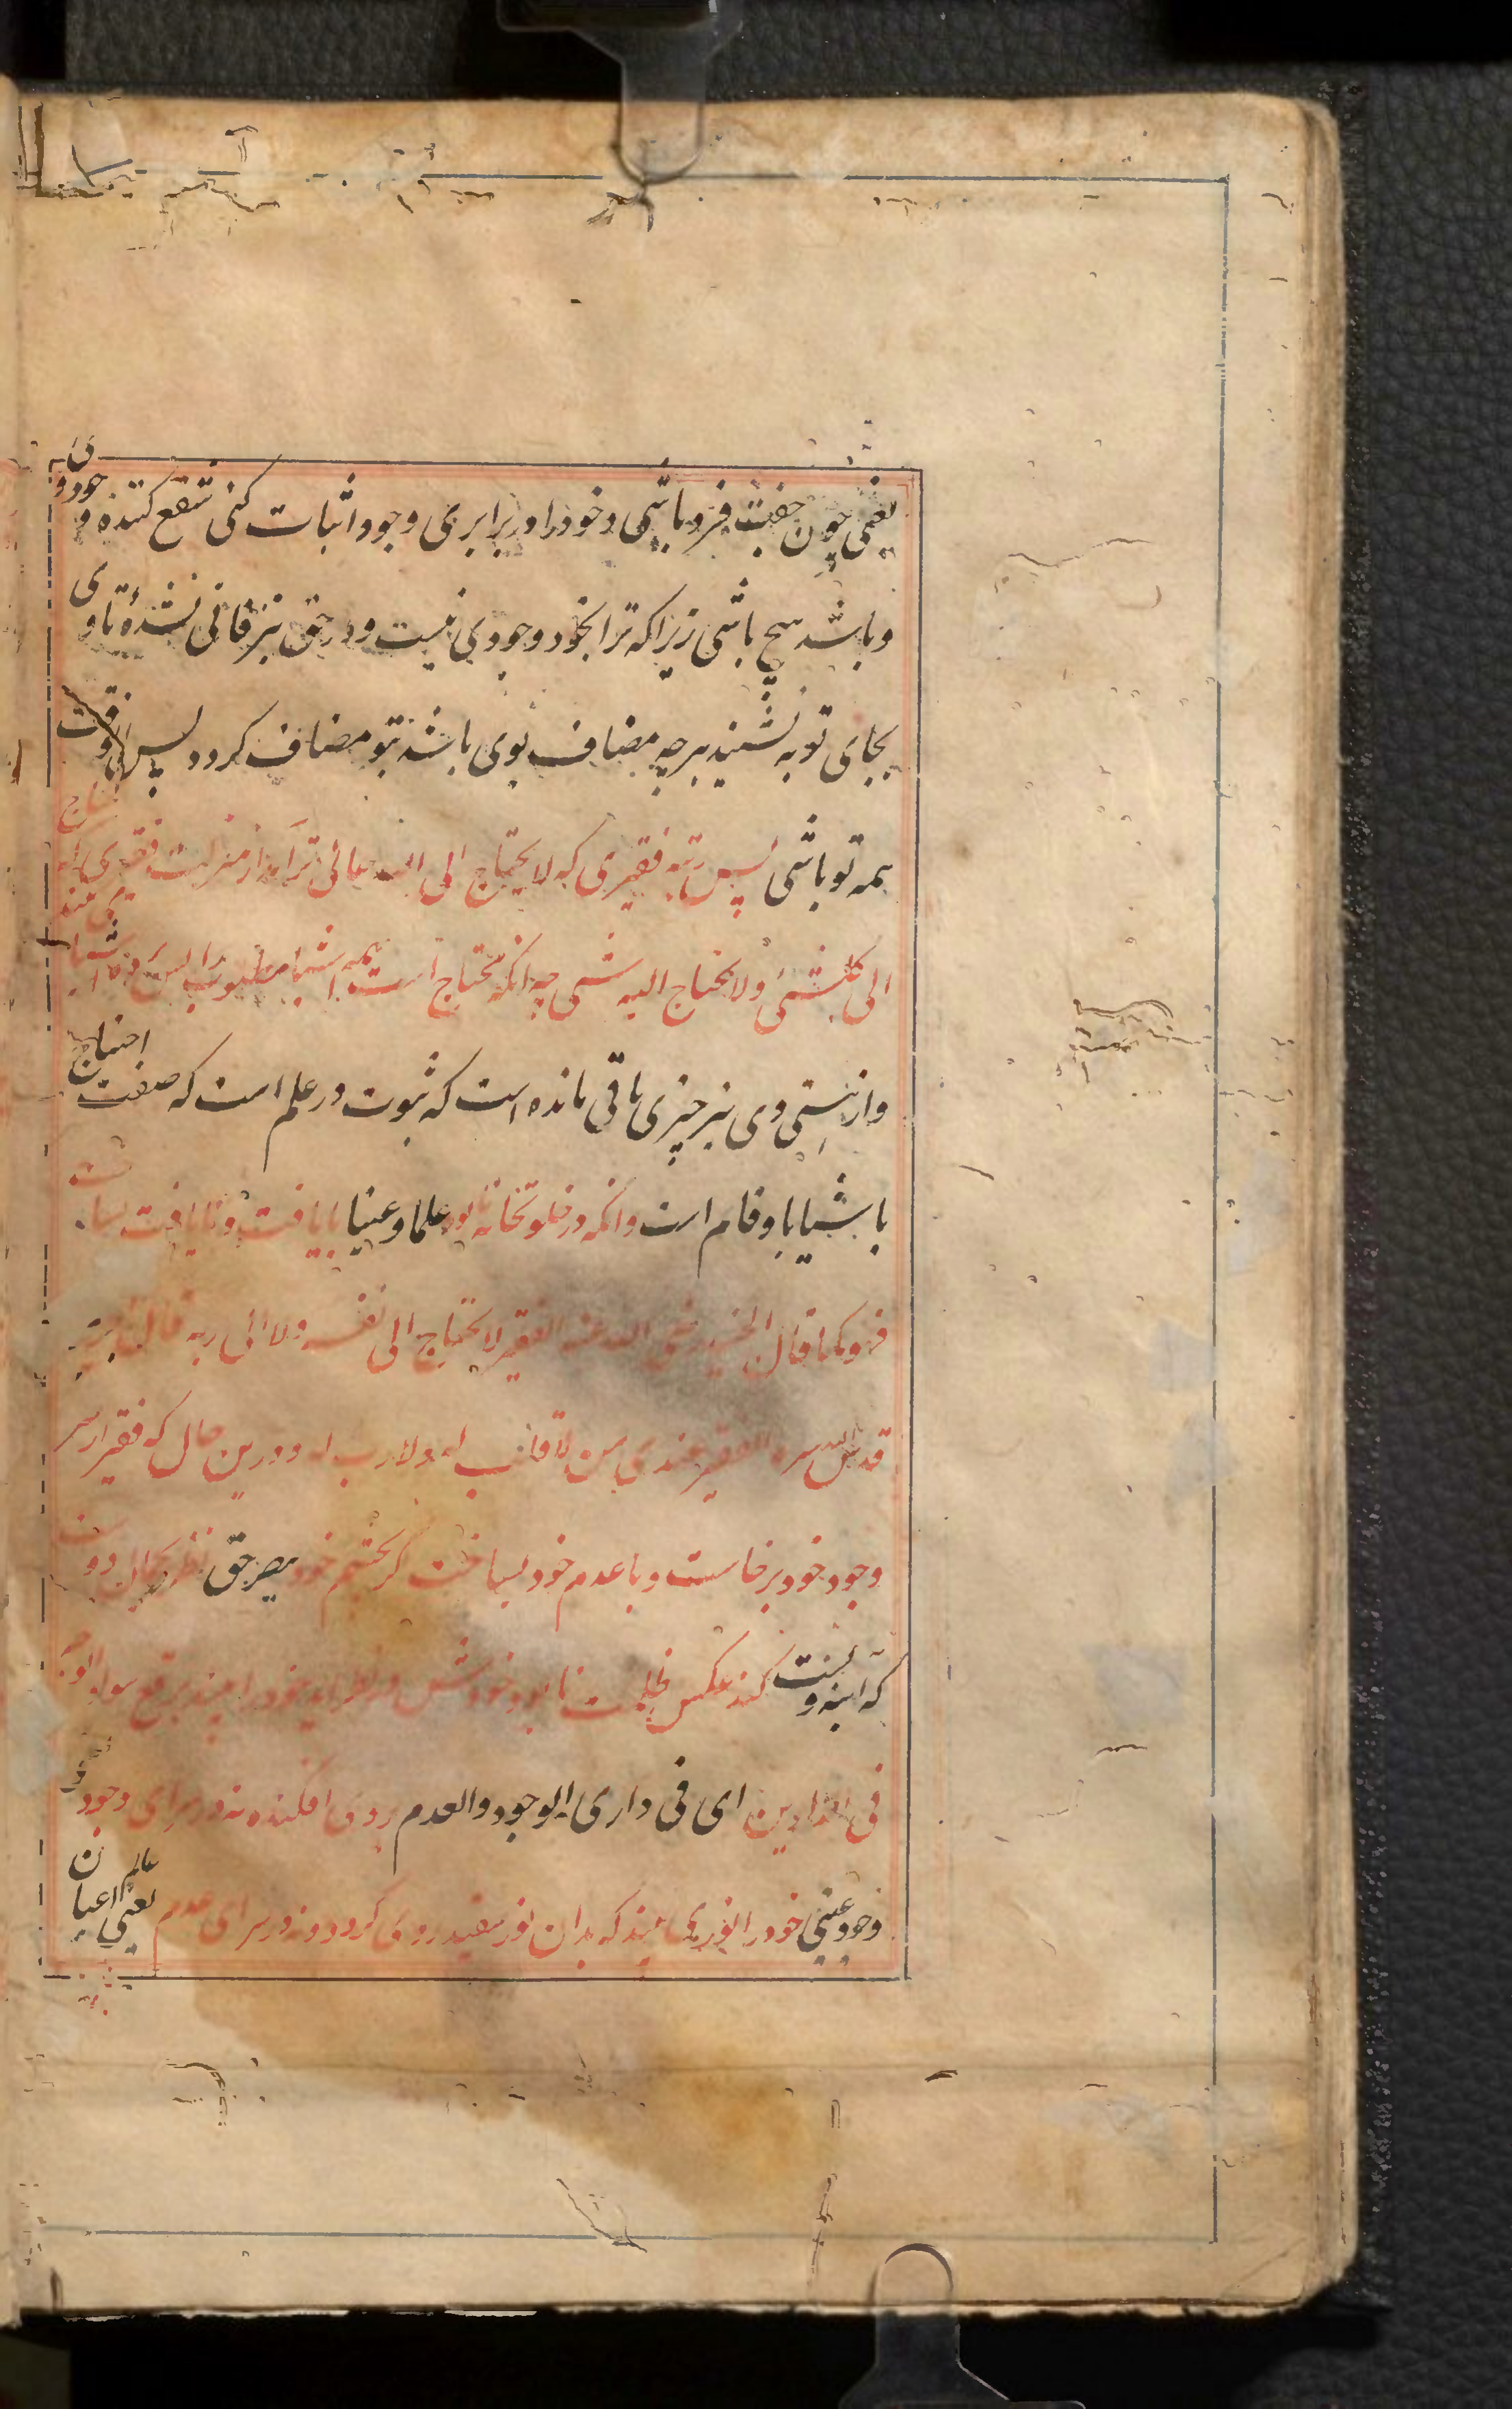 یعنی چون جفت فرد باشی و خود را در برابری وجود اثبات کنی شفع کننده وجود وی
و باشد هیچ باشی زیرا که ترا بخود وجودی نیست و در حق نیز فانی نشدهٔ تا وی
بجای تو به نشیند هر چه مضاف بوی باشد بتو مضاف کردد پس
همه تو باشی پس رتبه فقیری که لا یحتاج الی الله عالی تر آمد از منزلت فقیری که یحتاج
الی کل شیء ولا یحتاج الیه شی چه آنکه محتاج است همه اشیا مطلوب را
و از نیستی وی نیز چیزی باقی مانده است که ثبوت در علم است که صفت احتیاج
باشیا با و قایم است وانکه در خلوتخانه نابود علما و عینا با یافت و نایافت بساخت
فهو کما قال الجنید رضی الله عنه الفقیر لا یحتاج الی نفسه ولا الی ربه قال
قدس الله سره الفقیر عندی من لا قلب له ولا رب له و درین حال که فقیر از سر
وجود خود برخاست و با عدم خود بساخت اگر بچشم خود بصر حق نظر بجمال دوست
که آینه وست کند عکس ظلمت نابود خودش در نظر آید خود را بیند برقع سواد الوجه
فی الدارین ای فی داری الوجود والعدم بروی افکنده نه در سرای وجود
وجود عینی خود را نوری بیند که بدان نور سفید روی کردد و نه در سرای عدم یعنی عالم اعیان